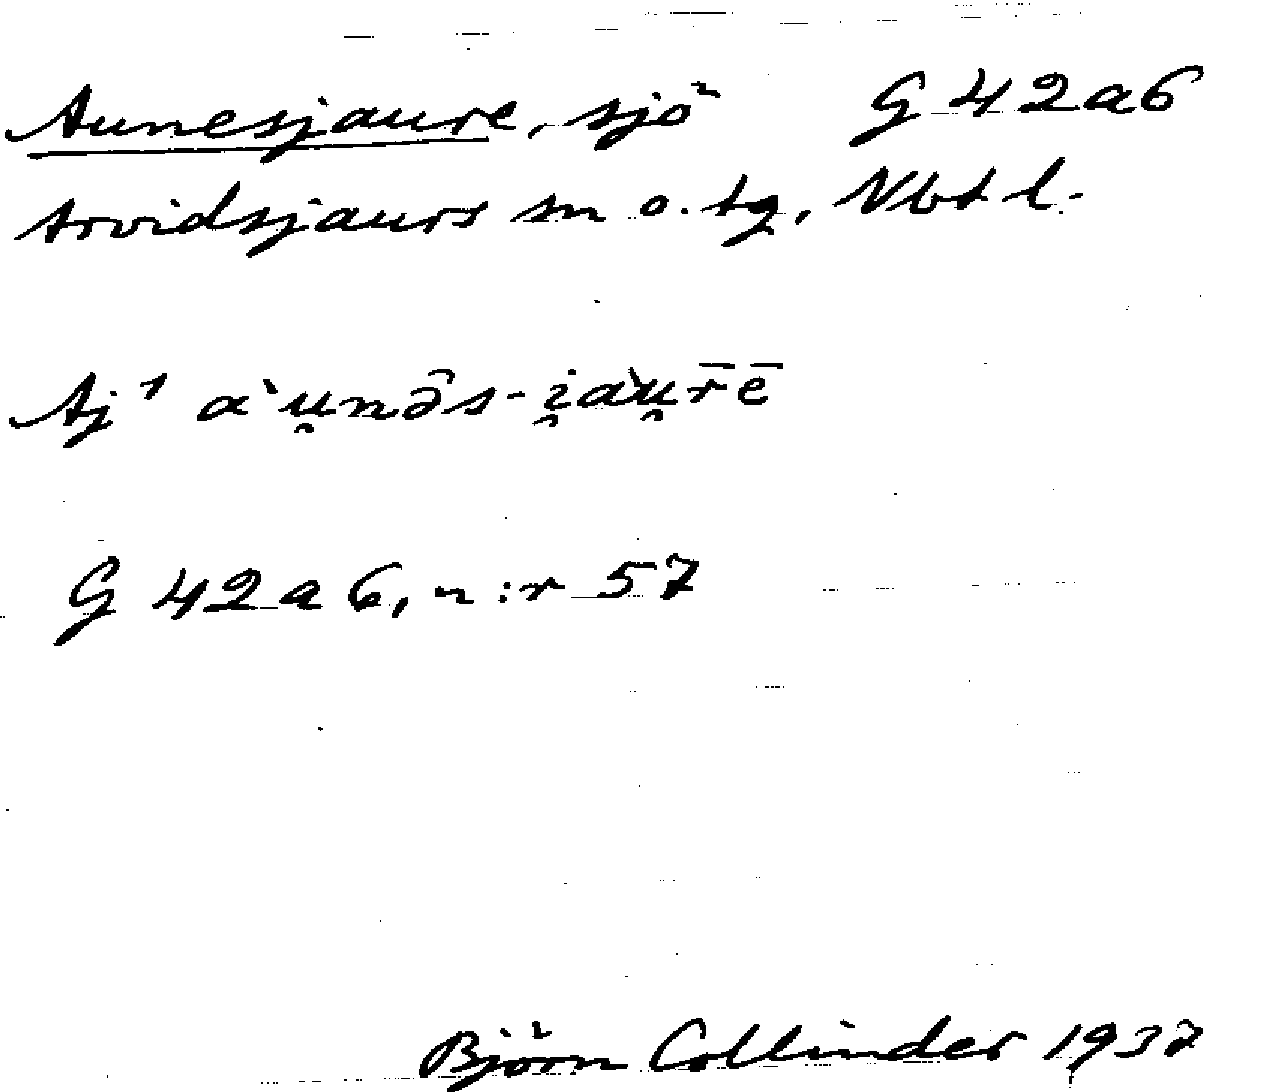 Aunesjaure, sjö G 42a6
Arvidsjaurs sn o. tg, Vbtl.
Aj 1 a`u̯nə̂s-i̯a`u̯r̄ē
G 42a6, n:r 57
Björn Collinder 1937